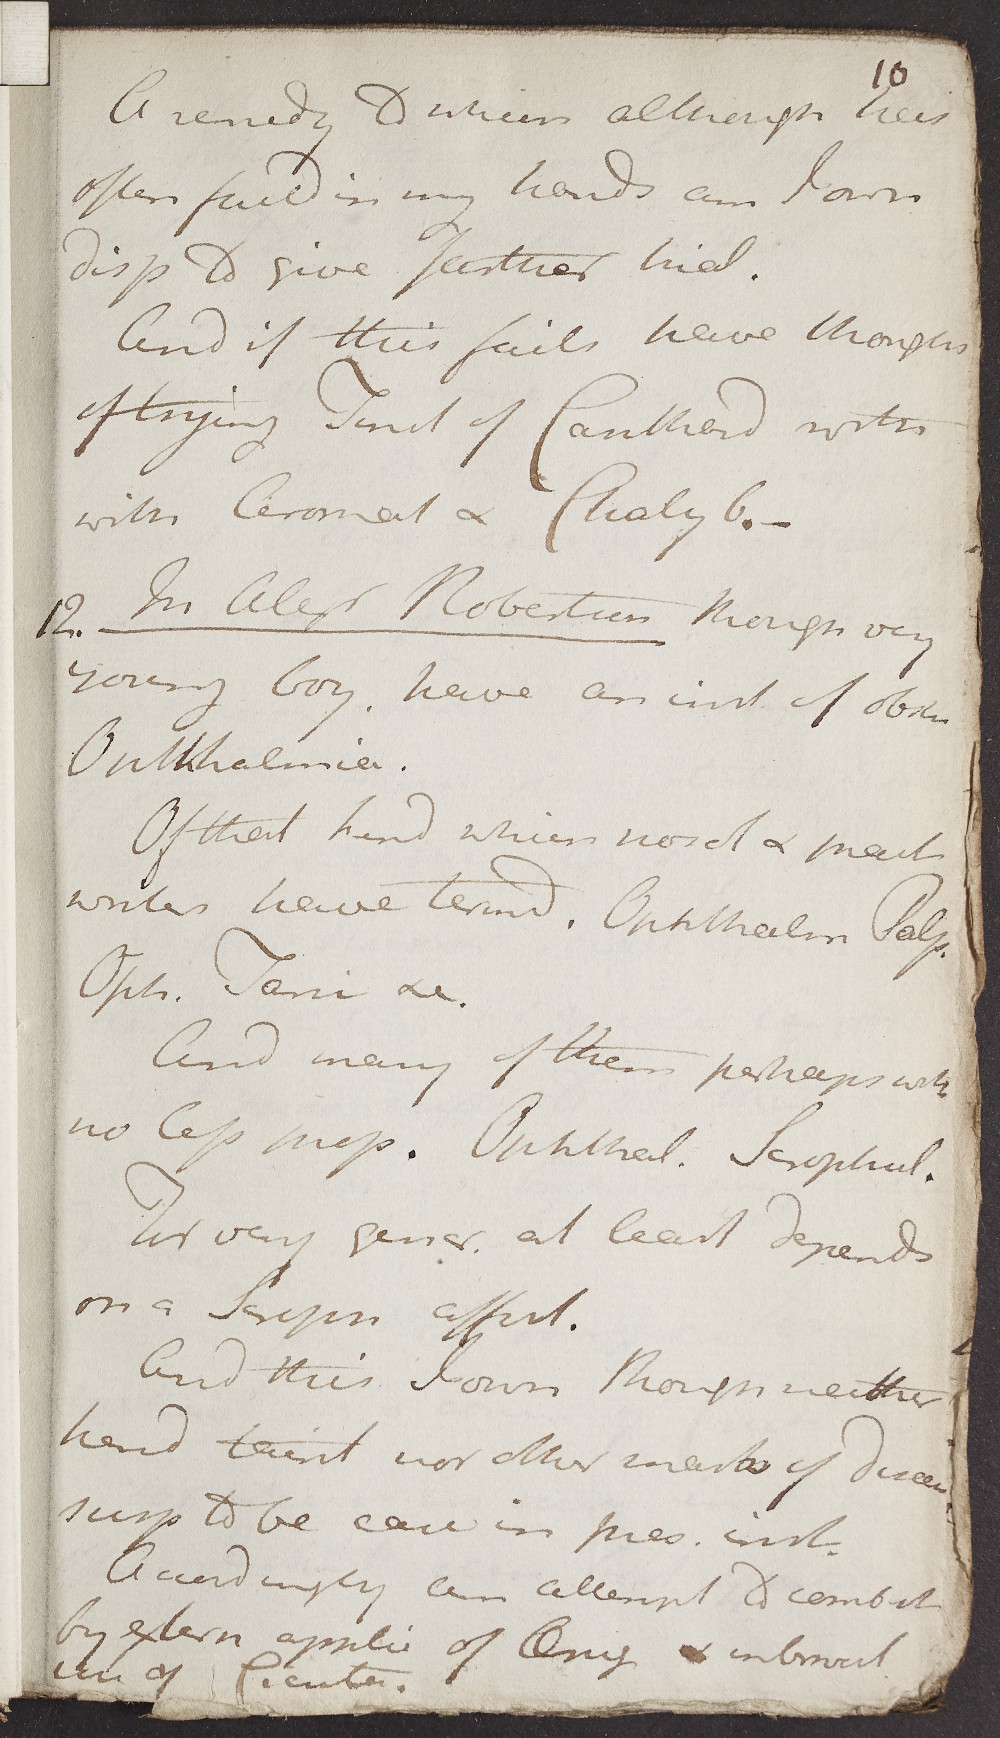 10
A remedy to which although has
often faild in my hands am I own
disp to give farther trial.
And if this fails have though
of trying Tinct of Canthard with
with Aromat & Chalyb. -
12. In Alexr Robertson though very
young boy. have an inst of obstin
Ophthalmia.
Of that kind which nosol & pract
writers have termd. Ophthalm Palp.
Oph. Tarsi &c.
And many of them perhaps with
no less prop. Ophthal. Scrophul.
For very gener. at least depends
on a Scroph affect.
And this I own though neither
hered taint nor other marks of disease
susp to be case in pres. inst.
Accordingly am attempt to combat
by extern applic of Ung & internal
use of Cicuta.